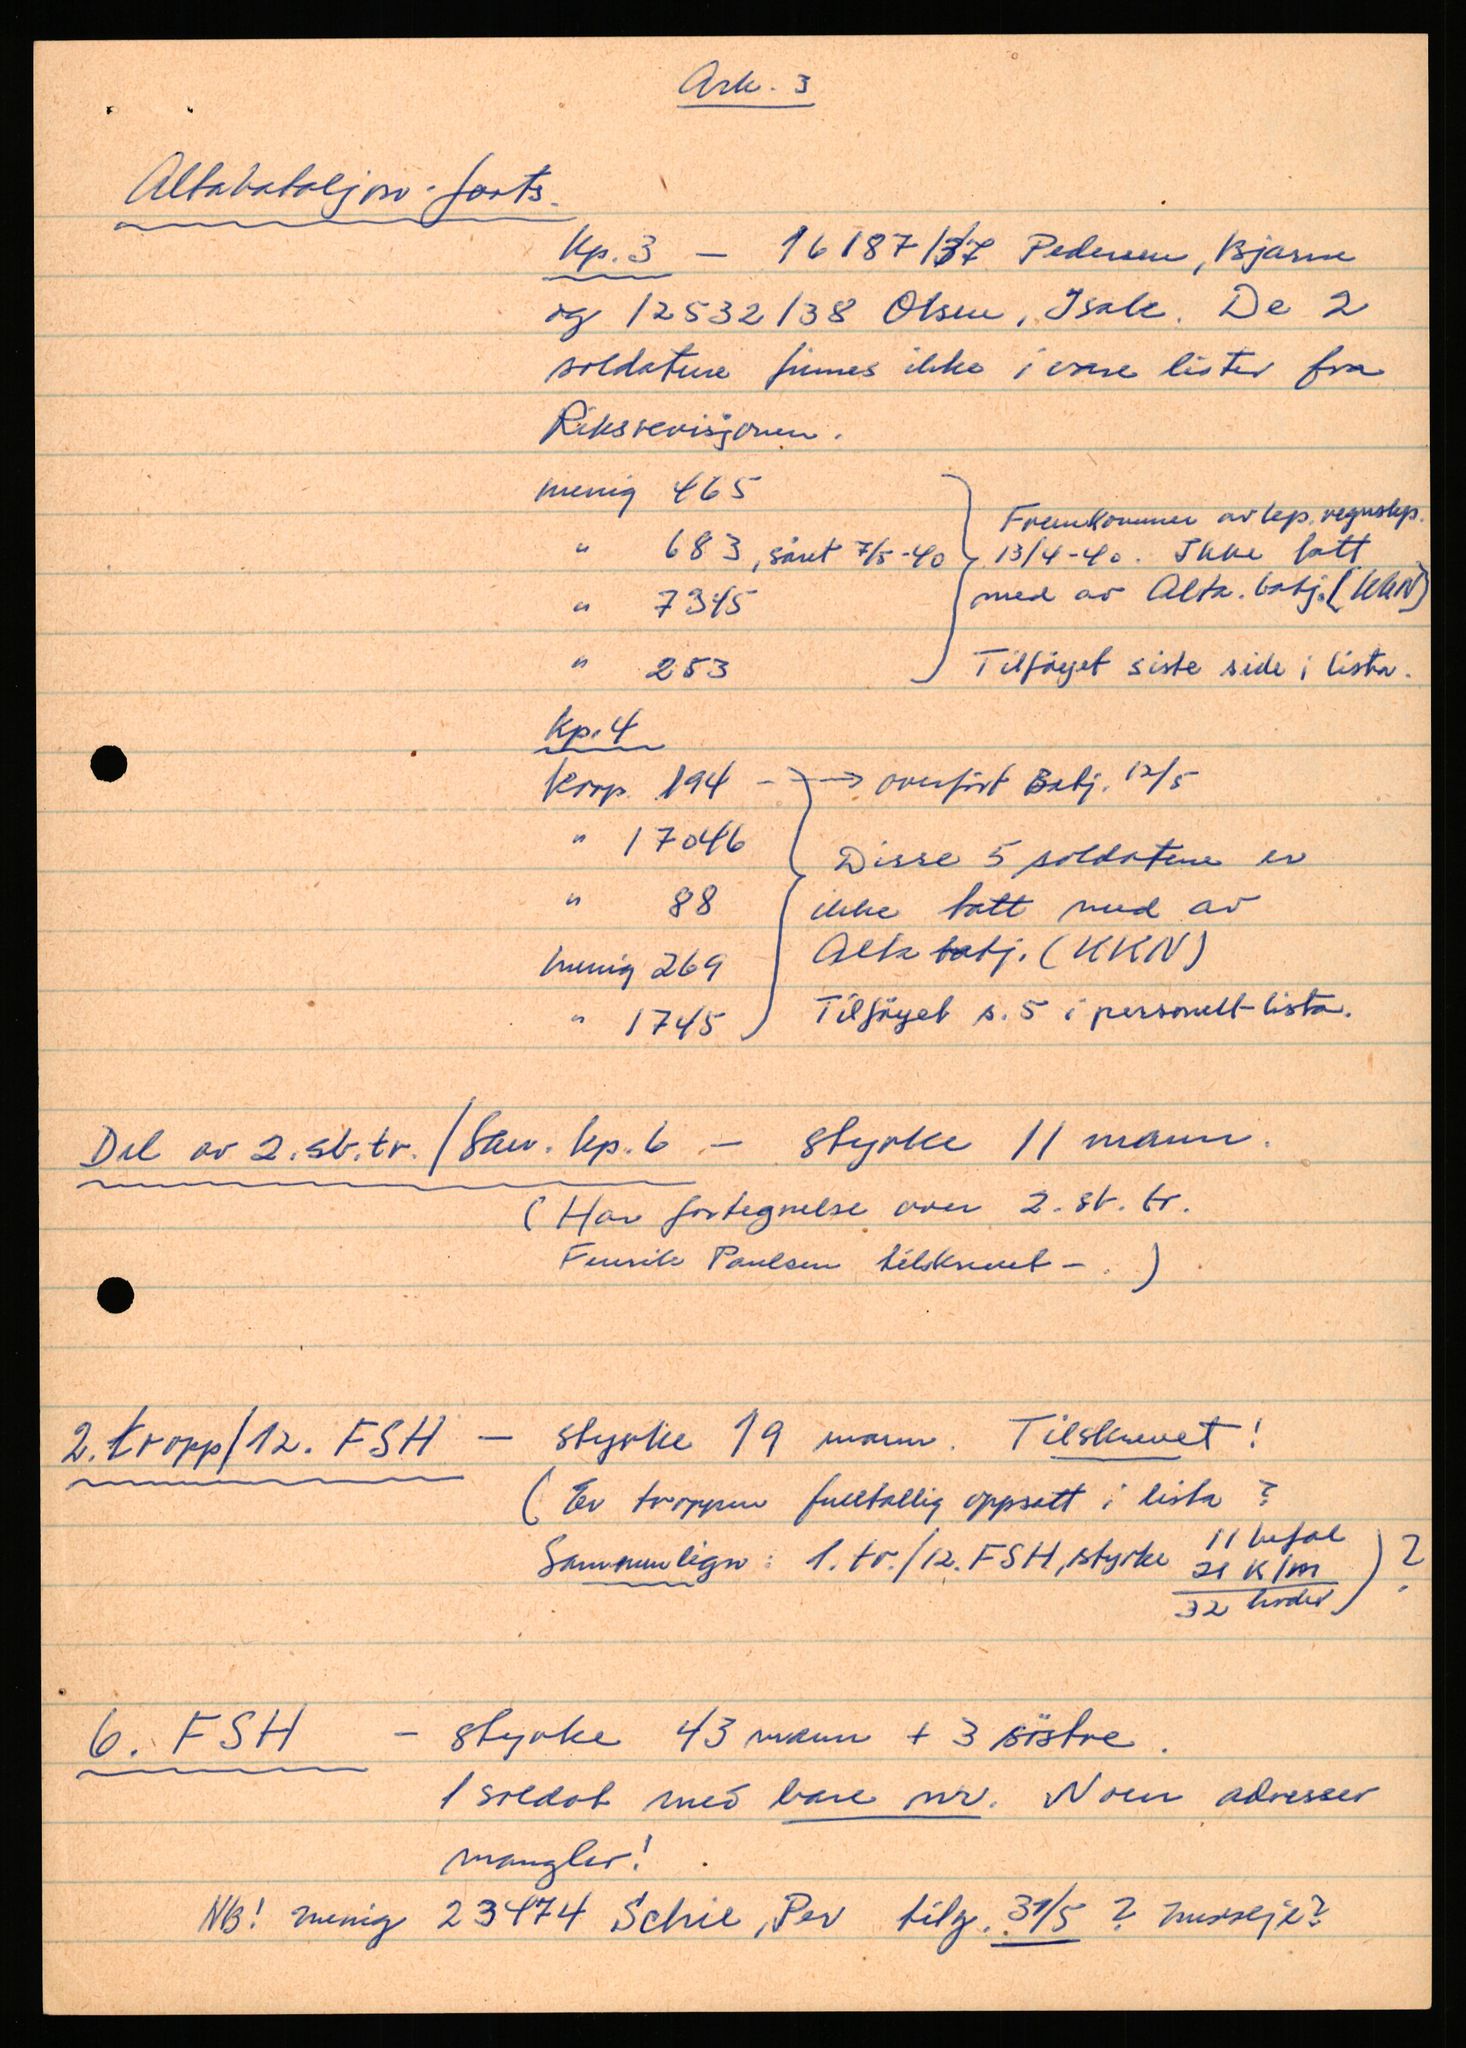 Ark. 3
Altabataljon - forts.
Kp. 3 - 16187/37 Pedersen, Bjarne
og 12532/38 Olsen, Isak. De 2
soldatene finnes ikke i våre lister fra
Riksrevisjonen.
menig 465
" 683, såret 7/5-40
" 7345
" 253
Fremkommer av kp. regnskp.
13/4-40. Ikke tatt
med av Alta. batj. (KKN)
Tilføyet siste side i lista.
Kp. 4
Korp. 194 - → overført Batj. 12/5
" 17046
" 88
menig 269
" 1745
Disse 5 soldatene er
ikke tatt med av
Alta batj. (KKN)
Tilføyet s. 5 i personell-lista.
Del av 2. st. tr. / San. kp. 6 - styrke 11 mann.
(Har fortegnelse over 2. st. tr.
Fenrik Paulsen tilskrevet - . )
2. tropp/12. FSH - styrke 19 mann. Tilskrevet!
(Er troppen fulltallig oppsatt i lista ?
Sammenlign: 1. tr./12. FSH, styrke 11 befal
21 K/m
32 hoder ) ?
6. FSH - styrke 43 mann + 3 söstre.
1 soldat med bare nr. Noen adresser
mangler! .
NB! menig 23474 Schie, Per tilg. 31/5 ?